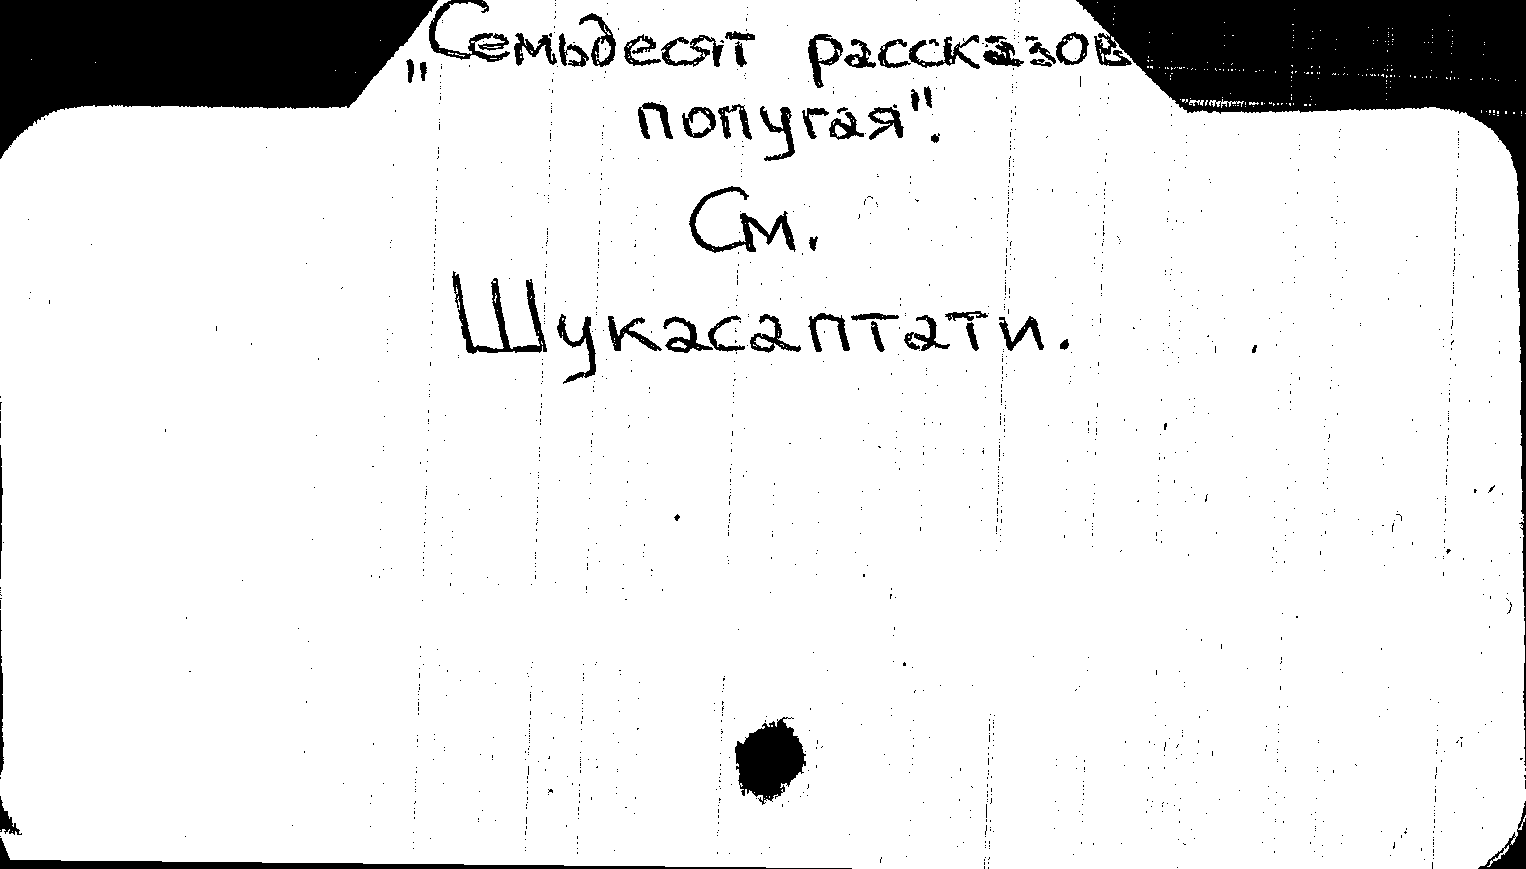 „Семьдесят рассказов
попугая".
См.
Шукасаптати.